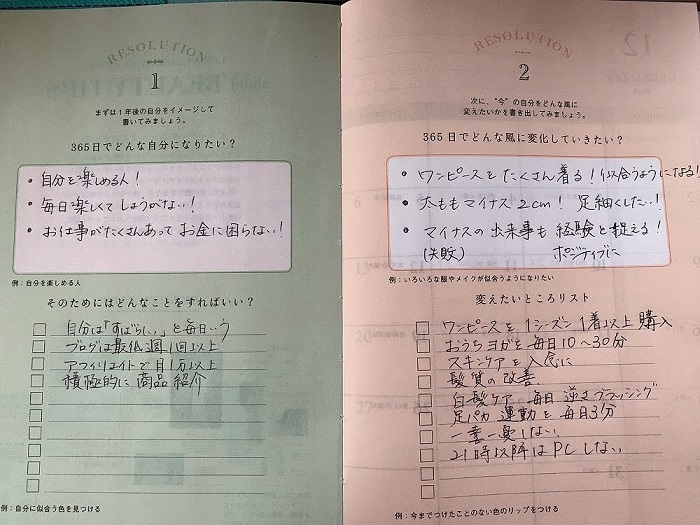 RESOLUTION
1
まずは1年後の自分をイメージして
書いてみましょう。
365日でどんな自分になりたい?
・自分を楽しめる人!
・毎日楽しくてしょうがない!
・お仕事がたくさんあってお金に困らない!
例:自分を楽しめる人
そのためにはどんなことをすればいい?
自分は「すばらしい」と毎日いう
ブログは最低週1回以上
アフィリエイトで月1万以上
積極的に商品紹介
例:自分に似合う色を見つける
RESOLUTION
2
次に、"今"の自分をどんな風に
変えたいかを書き出してみましょう。
365日でどんな風に変化していきたい?
・ワンピースをたくさん着る!似合うようになる!
・太ももマイナス2cm! 足細くしたい!
・マイナスの出来事も経験と捉える!
(失敗) ポジティブに
例:いろいろな服やメイクが似合うようになりたい
変えたいところリスト
ワンピースを1シーズン1着以上購入
おうちヨガを毎日10〜30分
スキンケアを入念に
髪質の改善
白髪ケア 毎日逆さブラッシング
足パカ運動を毎日3分
一喜一憂しない
21時以降はPCしない
例:今までつけたことのない色のリップをつける
12